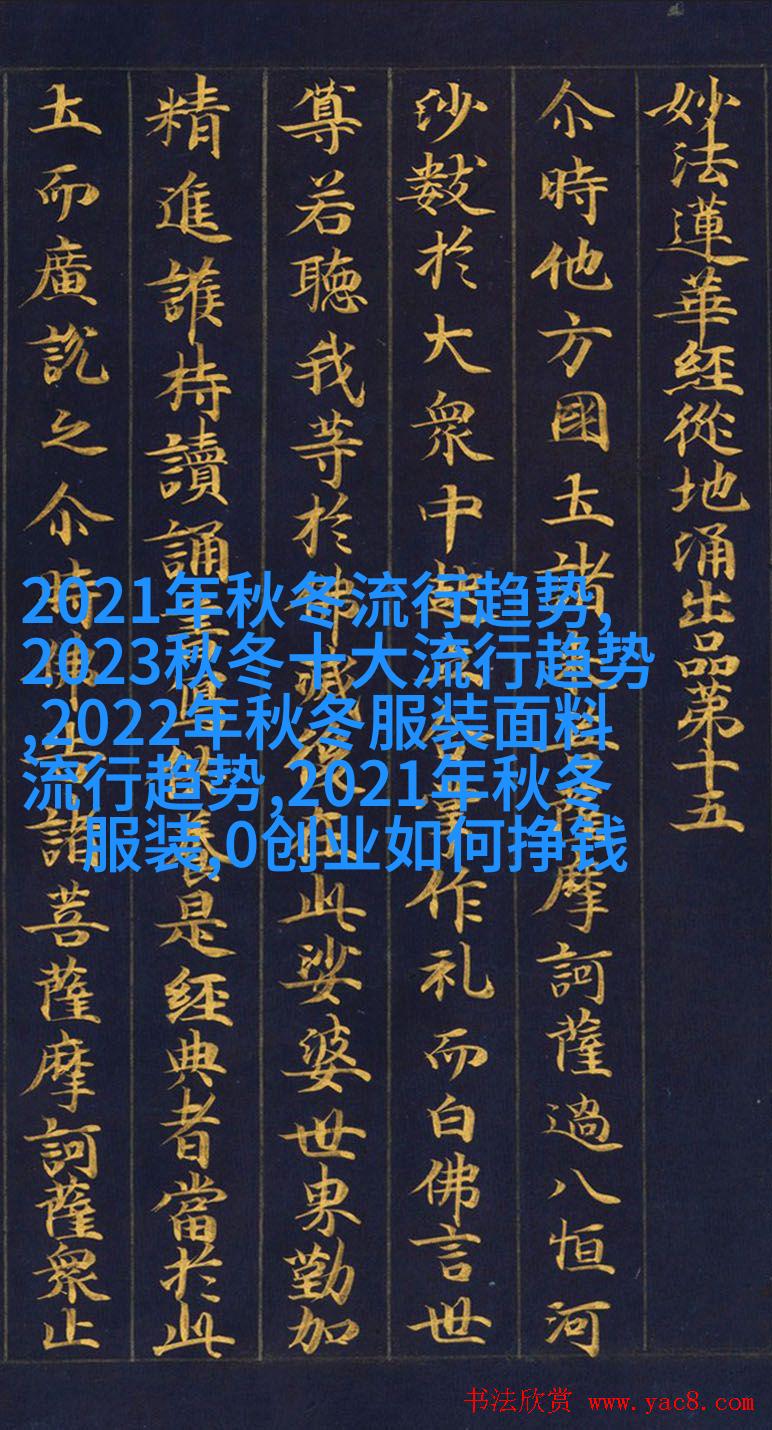 妙法蓮華經從地涌出品第十五
尒時他方國土諸薩摩訶薩過八恒河
沙數於大衆中作礼而白佛言世
尊若聽我等於佛滅後在此娑婆世界勤加
精進護持讀誦書寫供養是經典者當於此
土而廣說之尒時佛告諸菩薩摩訶薩衆止
2021年秋冬流行趋势,
2023秋冬十大流行趋势
,2022年秋冬服装面料
流行趋势,2021年秋冬
服装,0创业如何挣钱
书法欣赏 www.yac8.com